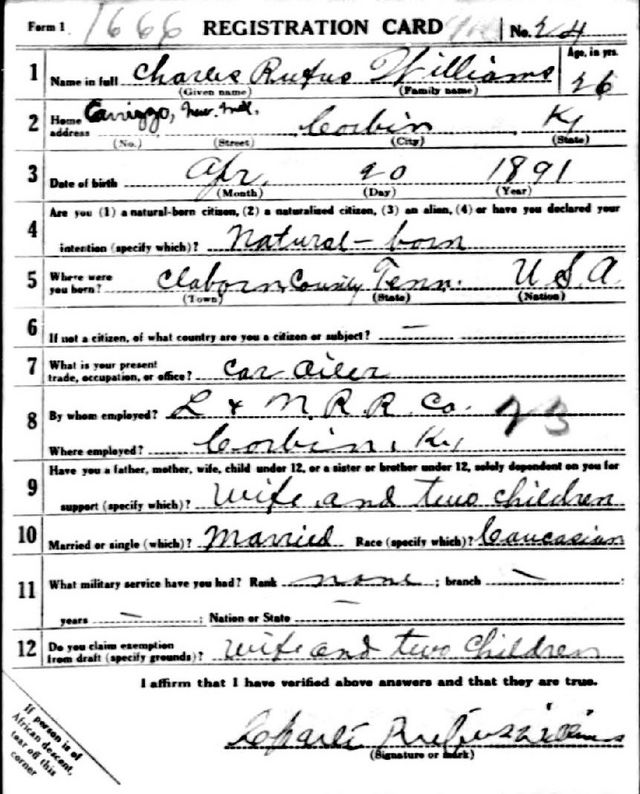 Form 1 1666 REGISTRATION CARD No. 24
Age, in yrs.
1 Name in full Charles Rufus Williams 26
(Given name) (Family name)
2 Home address Carrizzo, New. Mex. Corbin, Ky
(No.) (Street) (City) (State)
3 Date of birth Apr. 20 1891
(Month) (Day) (Year)
Are you (1) a natural-born citizen, (2) a naturalized citizen, (3) an alien, (4) or have you declared your
4 intention (specify which)? Natural-born
5 Where were you born? Claborn County Tenn. U.S.A.
(Town) (State) (Nation)
6 If not a citizen, of what country are you a citizen or subject? —
7 What is your present trade, occupation, or office? Car oiler
8 By whom employed? L & N. R. R. Co. 23
Where employed? Corbin, Ky
Have you a father, mother, wife, child under 12, or a sister or brother under 12, solely dependent on you for
9 support (specify which)? Wife and two children
10 Married or single (which)? Married Race (specify which)? Caucasian
11 What military service have you had? Rank none ; branch — ;
years — ; Nation or State —
12 Do you claim exemption from draft (specify grounds)? Wife and two children
I affirm that I have verified above answers and that they are true.
Charles Rufus Williams
(Signature or mark)
If person is of
African descent,
tear off this
corner